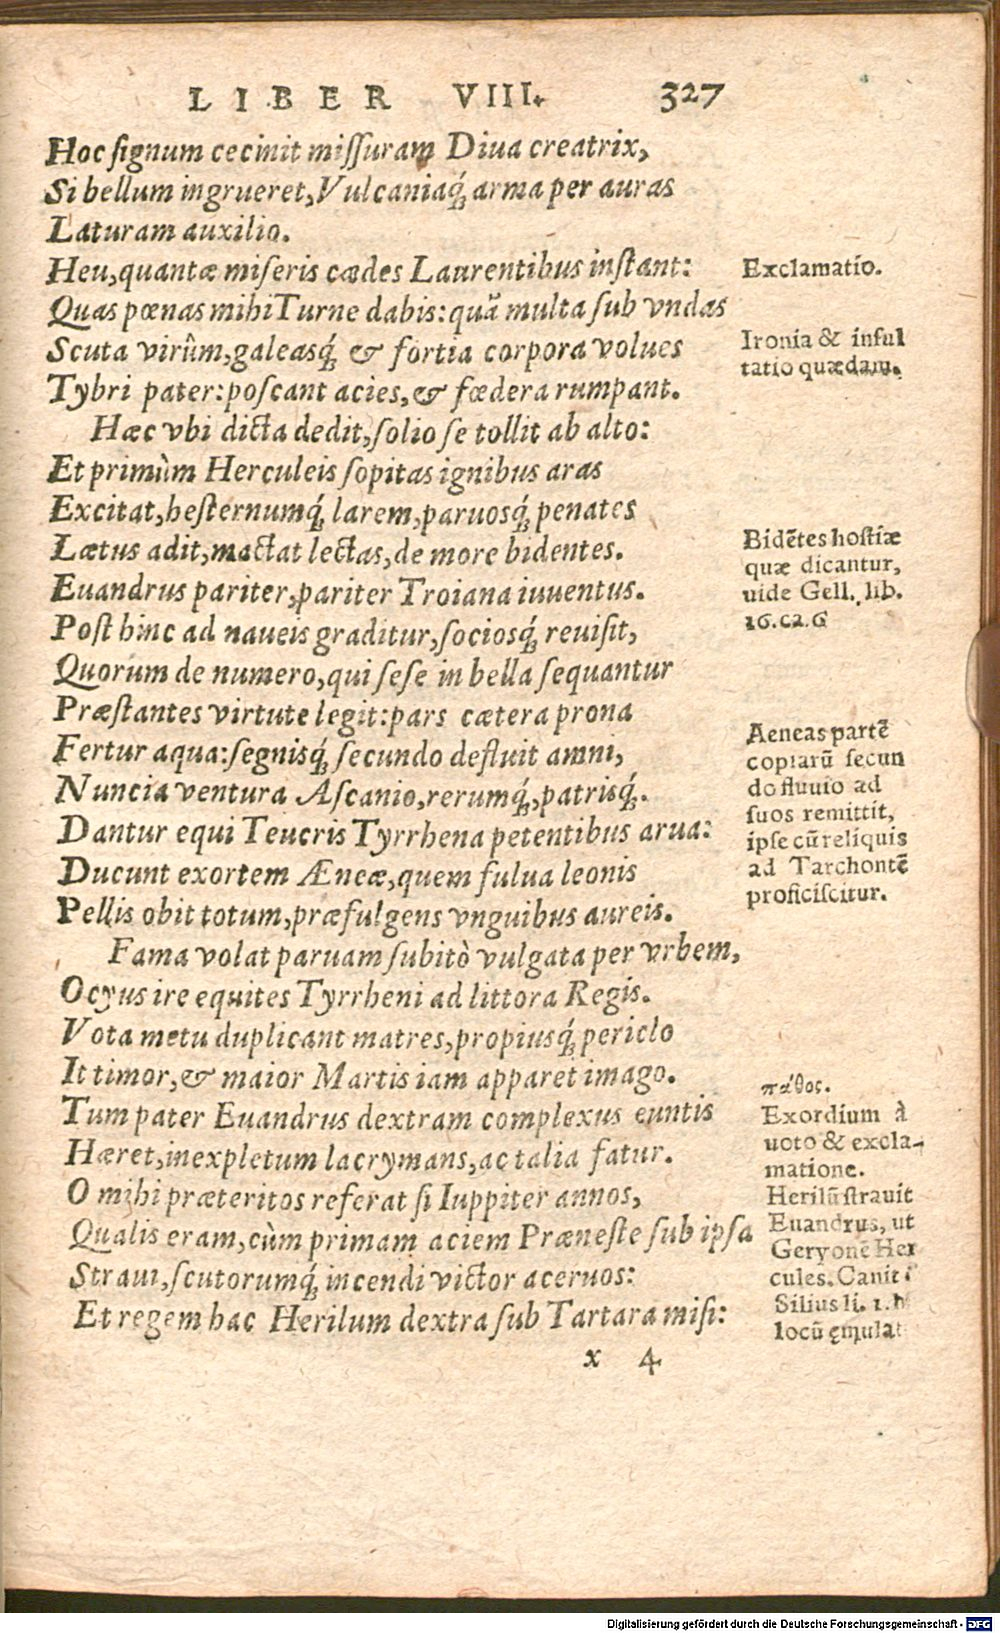 LIBER VIII. 327
Hoc signum cecinit missuram Diua creatrix,
Si bellum ingrueret, Vulcaniaq́ꝫ arma per auras
Laturam auxilio.
Heu, quantæ miseris cædes Laurentibus instant:
Exclamatio.
Quas pœnas mihi Turne dabis: quã multa sub vndas
Scuta virûm, galeasq́ꝫ & fortia corpora volues
Ironia & insul
Tybri pater: poscant acies, & fœdera rumpant.
tatio quædam.
Hæc vbi dicta dedit, solio se tollit ab alto:
Et primùm Herculeis sopitas ignibus aras
Excitat, hesternumq́ꝫ larem, paruosq́ꝫ penates
Lætus adit, mactat lectas, de more bidentes.
Euandrus pariter, pariter Troiana iuuentus.
Post hinc ad naueis graditur, sociosq́ꝫ reuisit,
Bidẽtes hostiæ
quæ dicantur,
uide Gell. lib.
16.ca.6
Quorum de numero, qui sese in bella sequantur
Præstantes virtute legit: pars cætera prona
Fertur aqua: segnisq́ꝫ secundo defluit amni,
Nuncia ventura Ascanio, rerumq́ꝫ, patrisq́ꝫ.
Dantur equi Teucris Tyrrhena petentibus arua:
Ducunt exortem Æneæ, quem fulua leonis
Pellis obit totum, præfulgens vnguibus aureis.
Aeneas partẽ
copiarũ secun
do fluuio ad
suos remittit,
ipse cũ reliquis
ad Tarchontẽ
proficiscitur.
Fama volat paruam subitò vulgata per vrbem,
Ocyus ire equites Tyrrheni ad littora Regis.
Vota metu duplicant matres, propiusq́ꝫ periclo
It timor, & maior Martis iam apparet imago.
Tum pater Euandrus dextram complexus euntis
Hæret, inexpletum lacrymans, ac talia fatur.
O mihi præteritos referat si Iuppiter annos,
Qualis eram, cùm primam aciem Præneste sub ipsa
Straui, scutorumq́ꝫ incendi victor aceruos:
Et regem hac Herilum dextra sub Tartara misi:
πάθος.
Exordium à
uoto & excla-
matione.
Herilũ strauit
Euandrus, ut
Geryonẽ Her
cules. Canit
Silius li. 1.
locũ ęmulat
x 4
Digitalisierung gefördert durch die Deutsche Forschungsgemeinschaft - DFG